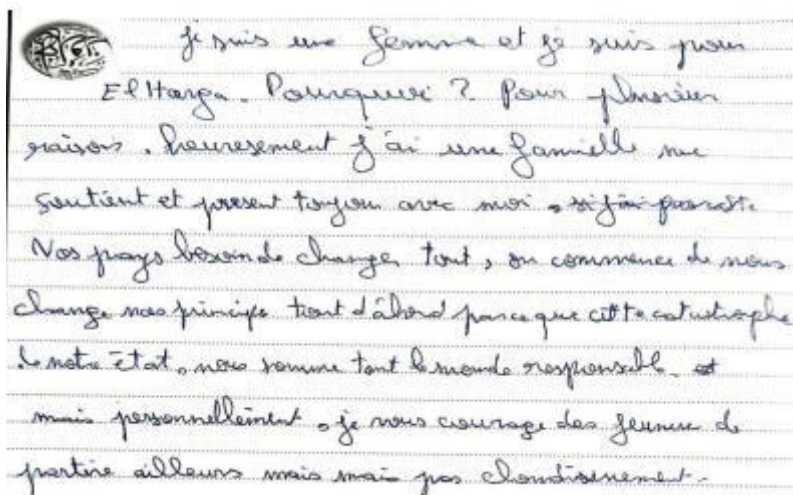 Je suis une femme et je suis pour
El Harga. Pourquoi ? Pour plusieur
raisons. heuresement j'ai une famielle me
soutient et present toujou avec moi
Nos pays besoin de changer tout, on commence de nous
change nos principe tout d'abord parce que cette catustrophe
de notre État, nous somme tout le monde responsable. et
mais personnellement, je vous courage des jeunne de
partire ailleurs mais mais pas clondisinement.